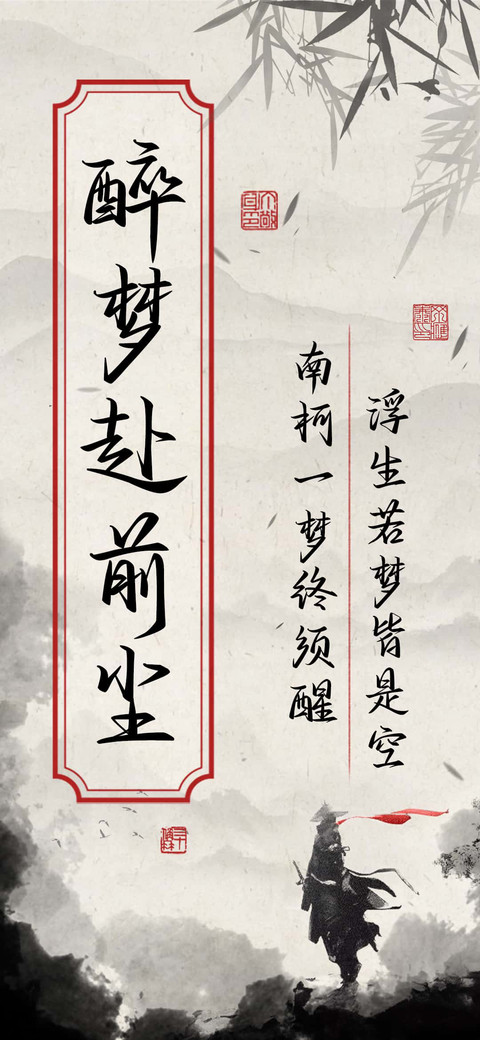 浮生若梦皆是空
南柯一梦终须醒
醉梦赴前尘